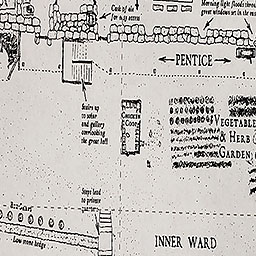 Cask of ale
for easy access
Morning light floods through
great windows in the
PENTICE
Stairs up
to solar
and gallery
overlooking
the great hall
VEGETABLE
& HERB
GARDEN
Steps lead
to private
Low stone hedge
INNER WARD